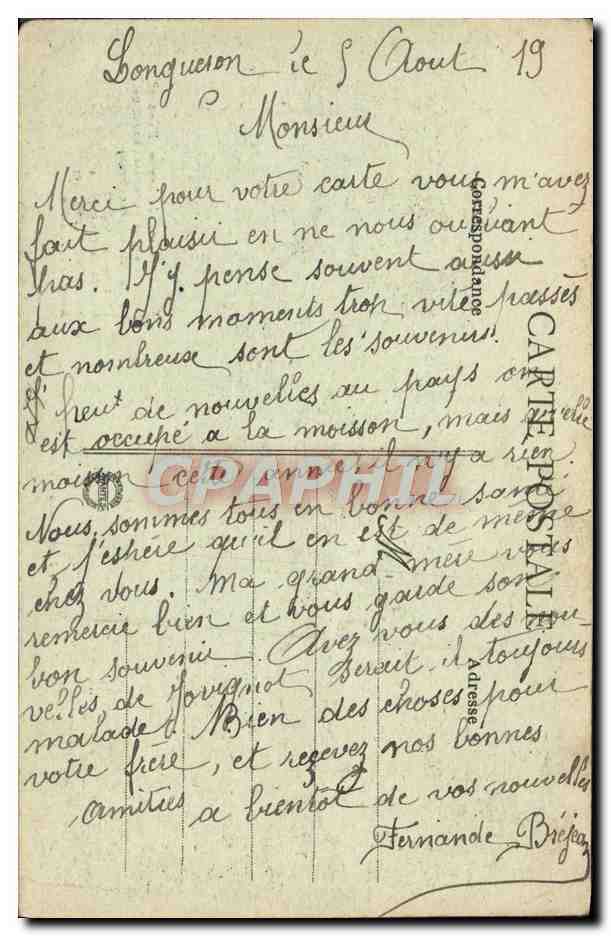 Longueson le 5 Aout 19
Monsieur
Merci pour votre carte vous m'avez
fait plaisir en ne nous oubliant
pas. J'y pense souvent aussi
aux bons moments trop vite passés
et nombreux sont les souvenirs.
peu de nouvelles au pays on
est occupé a la moisson, mais quelle
moisson cette année, il n'y a rien.
Nous sommes tous en bonne santé
et j'eshère qu'il en est de même
chez vous. Ma grand mère vous
remercie bien et vous garde son
bon souvenir. Avez vous des nou-
velles de Jovignot serait-il toujours
malade. Bien des choses pour
votre frère, et recevez nos bonnes
amities
a bientôt de vos nouvelles
Fernande Bréjeau
CARTE POSTALE
Correspondance
Adresse
CPAPHIL